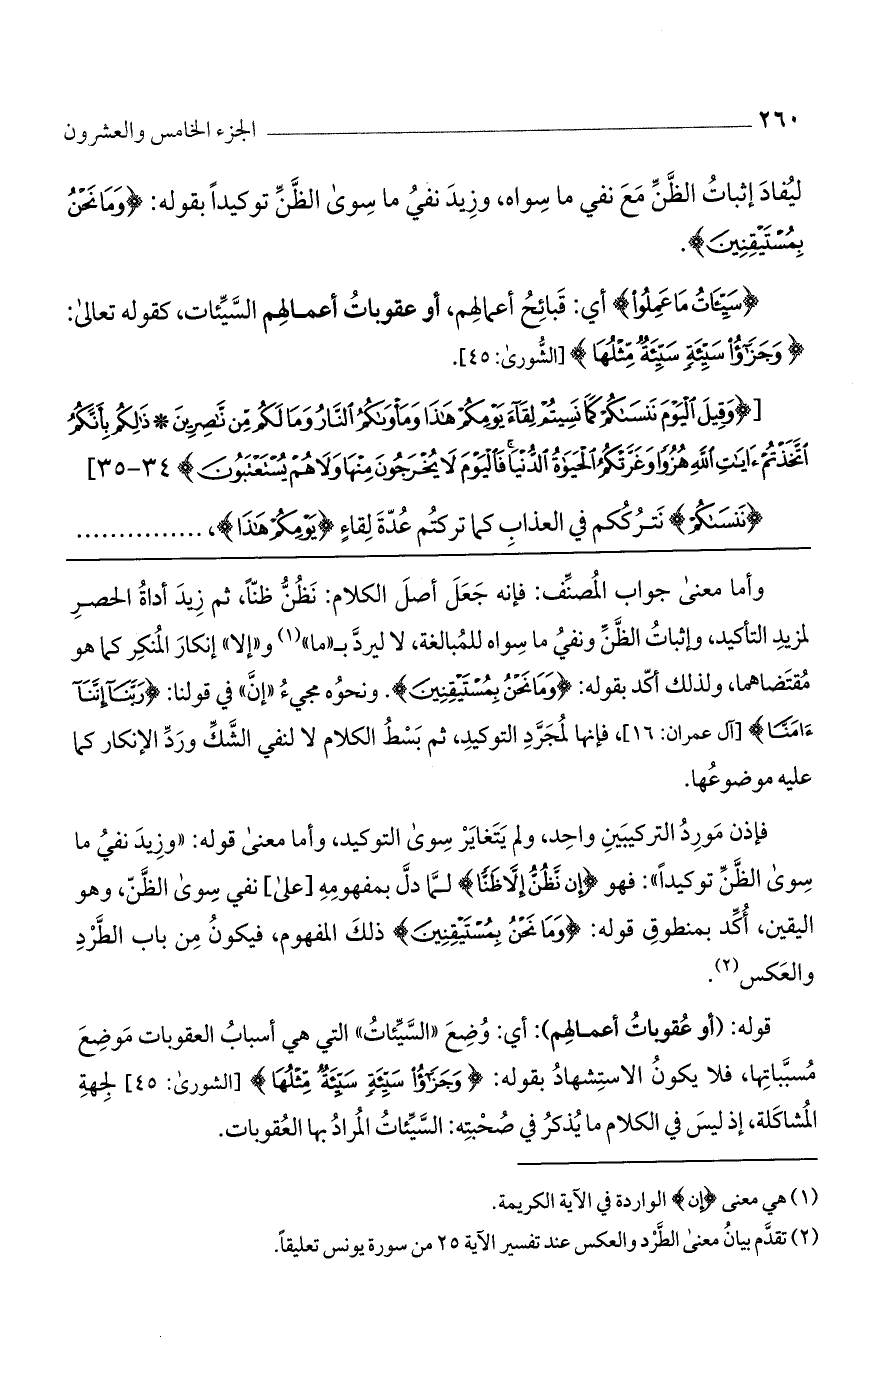 ٢٦٠ ــــــــــــــــــــ الجزء الخامس والعشرون
ليُفادَ إثباتُ الظَّنِّ مَعَ نفي ما سِواه، وزِيدَ نفيُ ما سِوىٰ الظَّنِّ توكيداً بقوله: ﴿وَمَا نَحْنُ
بِمُسْتَيْقِنِينَ﴾.
﴿سَيِّئَاتُ مَا عَمِلُوا۟﴾ أي: قَبائِحُ أعمالِهم، أو عقوباتُ أعمـالِهم السَّيِّئات، كقوله تعالىٰ:
﴿وَجَزَٰٓؤُا۟ سَيِّئَةٍ سَيِّئَةٌ مِّثْلُهَا﴾ [الشُّورىٰ: ٤٥].
[﴿وَقِيلَ ٱلْيَوْمَ نَنسَىٰكُمْ كَمَا نَسِيتُمْ لِقَآءَ يَوْمِكُمْ هَٰذَا وَمَأْوَىٰكُمُ ٱلنَّارُ وَمَا لَكُم مِّن نَّٰصِرِينَ * ذَٰلِكُم بِأَنَّكُمُ
ٱتَّخَذْتُمْ ءَايَٰتِ ٱللَّهِ هُزُوًا وَغَرَّتْكُمُ ٱلْحَيَوٰةُ ٱلدُّنْيَا ۚ فَٱلْيَوْمَ لَا يُخْرَجُونَ مِنْهَا وَلَا هُمْ يُسْتَعْتَبُونَ﴾ ٣٤-٣٥]
﴿نَنسَىٰكُمْ﴾ نَتـرُكُكم في العذابِ كما تركتُم عُدّةَ لِقاءِ ﴿يَوْمِكُمْ هَٰذَا﴾، ...............
وأما معنىٰ جواب المُصنِّف: فإنه جَعَلَ أصلَ الكلام: نَظُنُّ ظنّاً، ثم زِيدَ أداةُ الحصرِ
لمزيدِ التأكيد، وإثباتُ الظَّنِّ ونفيُ ما سِواه للمُبالغة، لا ليردَّ بـ«ما»(١) و«إلا» إنكارَ المُنكِر كما هو
مُقتَضاهما، ولذلك أكّد بقوله: ﴿وَمَا نَحْنُ بِمُسْتَيْقِنِينَ﴾. ونحوُه مجيءُ «إنَّ» في قولنا: ﴿رَبَّنَآ إِنَّنَآ
ءَامَنَّا﴾ [آل عمران: ١٦]، فإنها لمُجَرَّدِ التوكيدِ، ثم بَسْطُ الكلام لا لنفي الشَّكِّ وردِّ الإنكار كما
عليه موضوعُها.
فإذن مَورِدُ التركيبَينِ واحِد، ولم يَتَغايَرْ سِوىٰ التوكيد، وأما معنىٰ قوله: «وزِيدَ نفيُ ما
سِوىٰ الظَّنِّ توكيداً»: فهو ﴿إِن نَّظُنُّ إِلَّا ظَنًّا﴾ لـمَّا دلَّ بمفهومِهِ [علىٰ] نفي سِوىٰ الظَّنّ، وهو
اليقين، أُكِّد بمنطوقِ قوله: ﴿وَمَا نَحْنُ بِمُسْتَيْقِنِينَ﴾ ذلكَ المفهوم، فيكونُ مِن باب الطَّرْدِ
والعَكس(٢).
قوله: (أو عُقوباتُ أعمـالِهم): أي: وُضِعَ «السَّيِّئاتُ» التي هي أسبابُ العقوبات مَوضِعَ
مُسبَّباتِها، فلا يكونُ الاستِشهادُ بقوله: ﴿وَجَزَٰٓؤُا۟ سَيِّئَةٍ سَيِّئَةٌ مِّثْلُهَا﴾ [الشورىٰ: ٤٥] لجِهةِ
المُشاكَلة، إذ ليسَ في الكلام ما يُذكرُ في صُحْبتِه: السَّيِّئاتُ المُرادُ بها العُقوبات.
(١) هي معنى ﴿إن﴾ الواردة في الآية الكريمة.
(٢) تقدَّم بيانُ معنىٰ الطَّرْد والعكس عند تفسير الآية ٢٥ من سورة يونس تعليقاً.